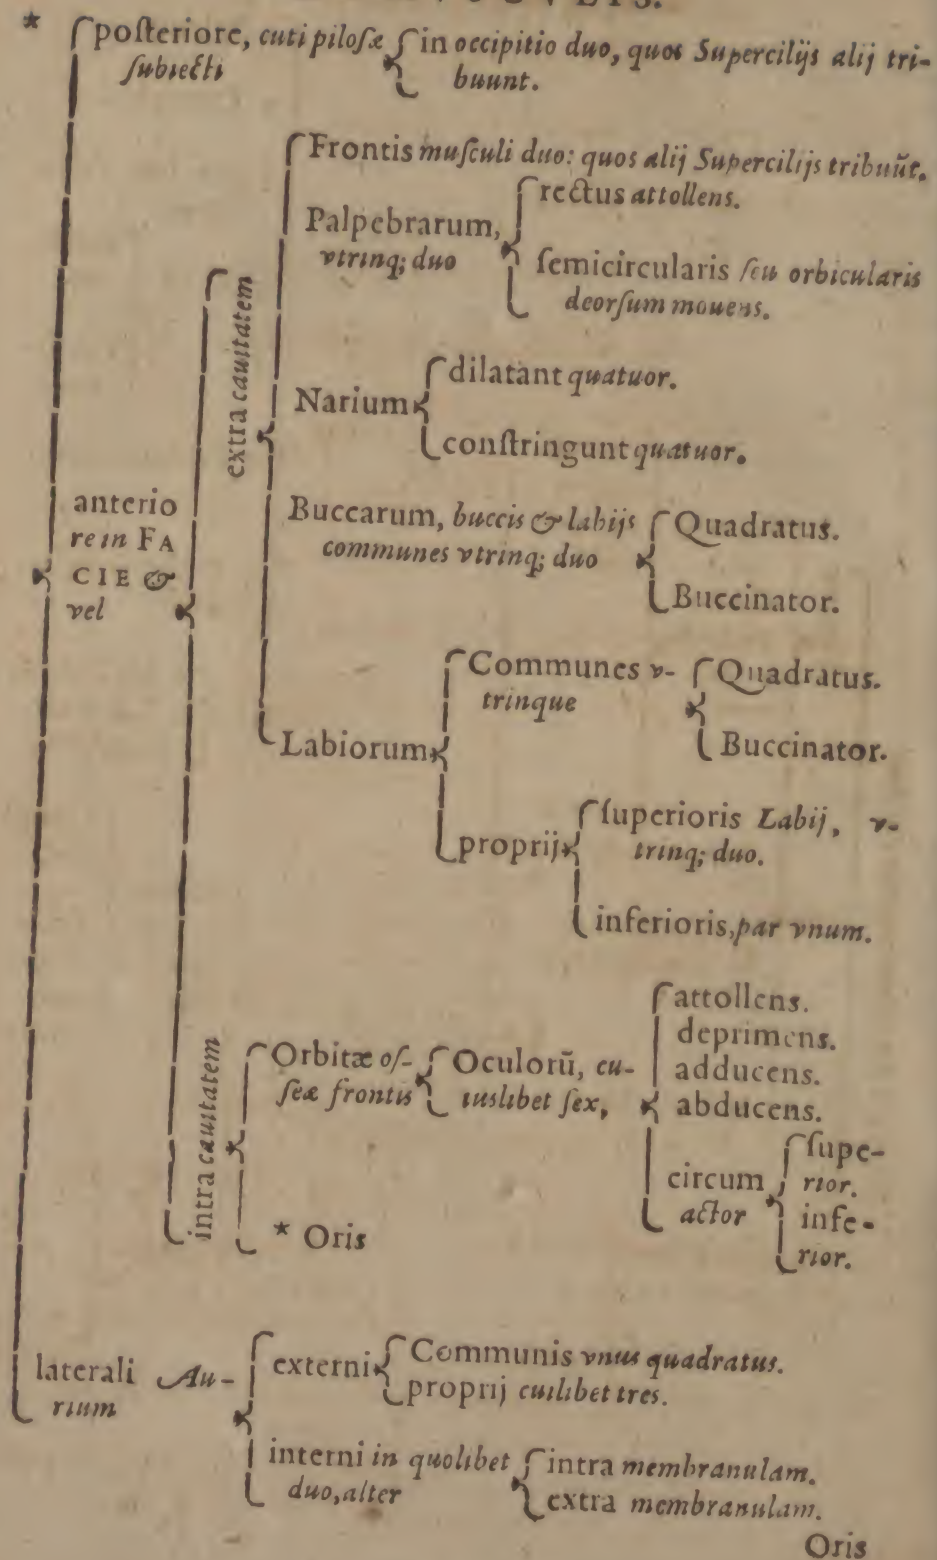 *
posteriore, cuti pilosæ
subiecti
in occipitio duo, quos Supercilijs alij tri-
buunt.
anterio
re in FA
CIE &
vel
extra cauitatem
Frontis musculi duo: quos alij Supercilijs tribuũt.
Palpebrarum,
vtrinq; duo
rectus attollens.
semicircularis seu orbicularis
deorsum mouens.
Narium
dilatant quatuor.
constringunt quatuor.
Buccarum, buccis & labijs
communes vtrinq; duo
Quadratus.
Buccinator.
Labiorum
Communes v-
trinque
Quadratus.
Buccinator.
proprij
superioris Labij, v-
trinq; duo.
inferioris, par vnum.
intra cauitatem
Orbitæ os-
seæ frontis
Oculorũ, cu-
iuslibet sex,
attollens.
deprimens.
adducens.
abducens.
circum
actor
supe-
rior.
infe-
rior.
* Oris
laterali Au-
rium
externi
Communis vnus quadratus.
proprij cuilibet tres.
interni in quolibet
duo, alter
intra membranulam.
extra membranulam.
Oris